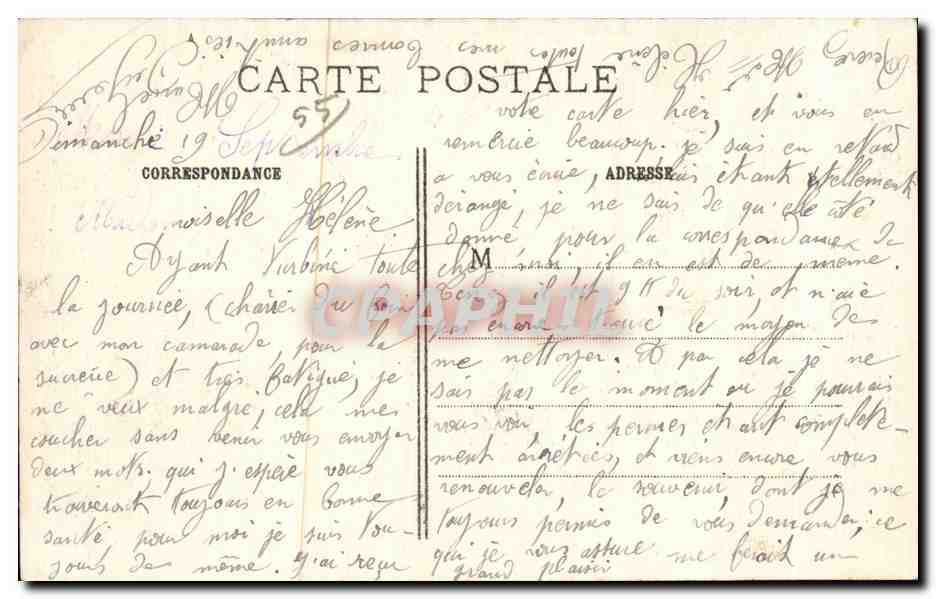 toutes mes bonnes amitiés
Recevez Melle Hélène
CARTE POSTALE
55
Dimanche 19 Septembre
CORRESPONDANCE
ADRESSE
M
Mademoiselle Hélène
Ayant turbiné toute
la journée, (charié du
avec mon camarade, pour la
sucrerie) et très fatigué, je
ne veux malgré, cela mes
coucher sans venir vous envoyer
deux mots, qui j'espère vous
trouveront toujours en bonne
santé pour moi je suis tou-
jours de même. J'ai reçu
vote carte hier, et vous en
remercie beaucoup. je suis en retard
a vous écrire, mais étant tellement
dérangé, je ne sais de qu'elle côté
donné, pour la correspondance de
chez moi, il en est de même.
Tenez il est 9 H du soir, et n'aie
pas encore trouvé le moyen des
me nettoyer. A par cela je ne
sais pas le moment ou je pourais
vous voir, les permes étant complete-
ment arétées, et viens encore vous
renouveler, le souvenir, dont je me
toujours permis de vous demander, ce
qui je vous assure me ferait un
grand plaisir
CPAPHIL